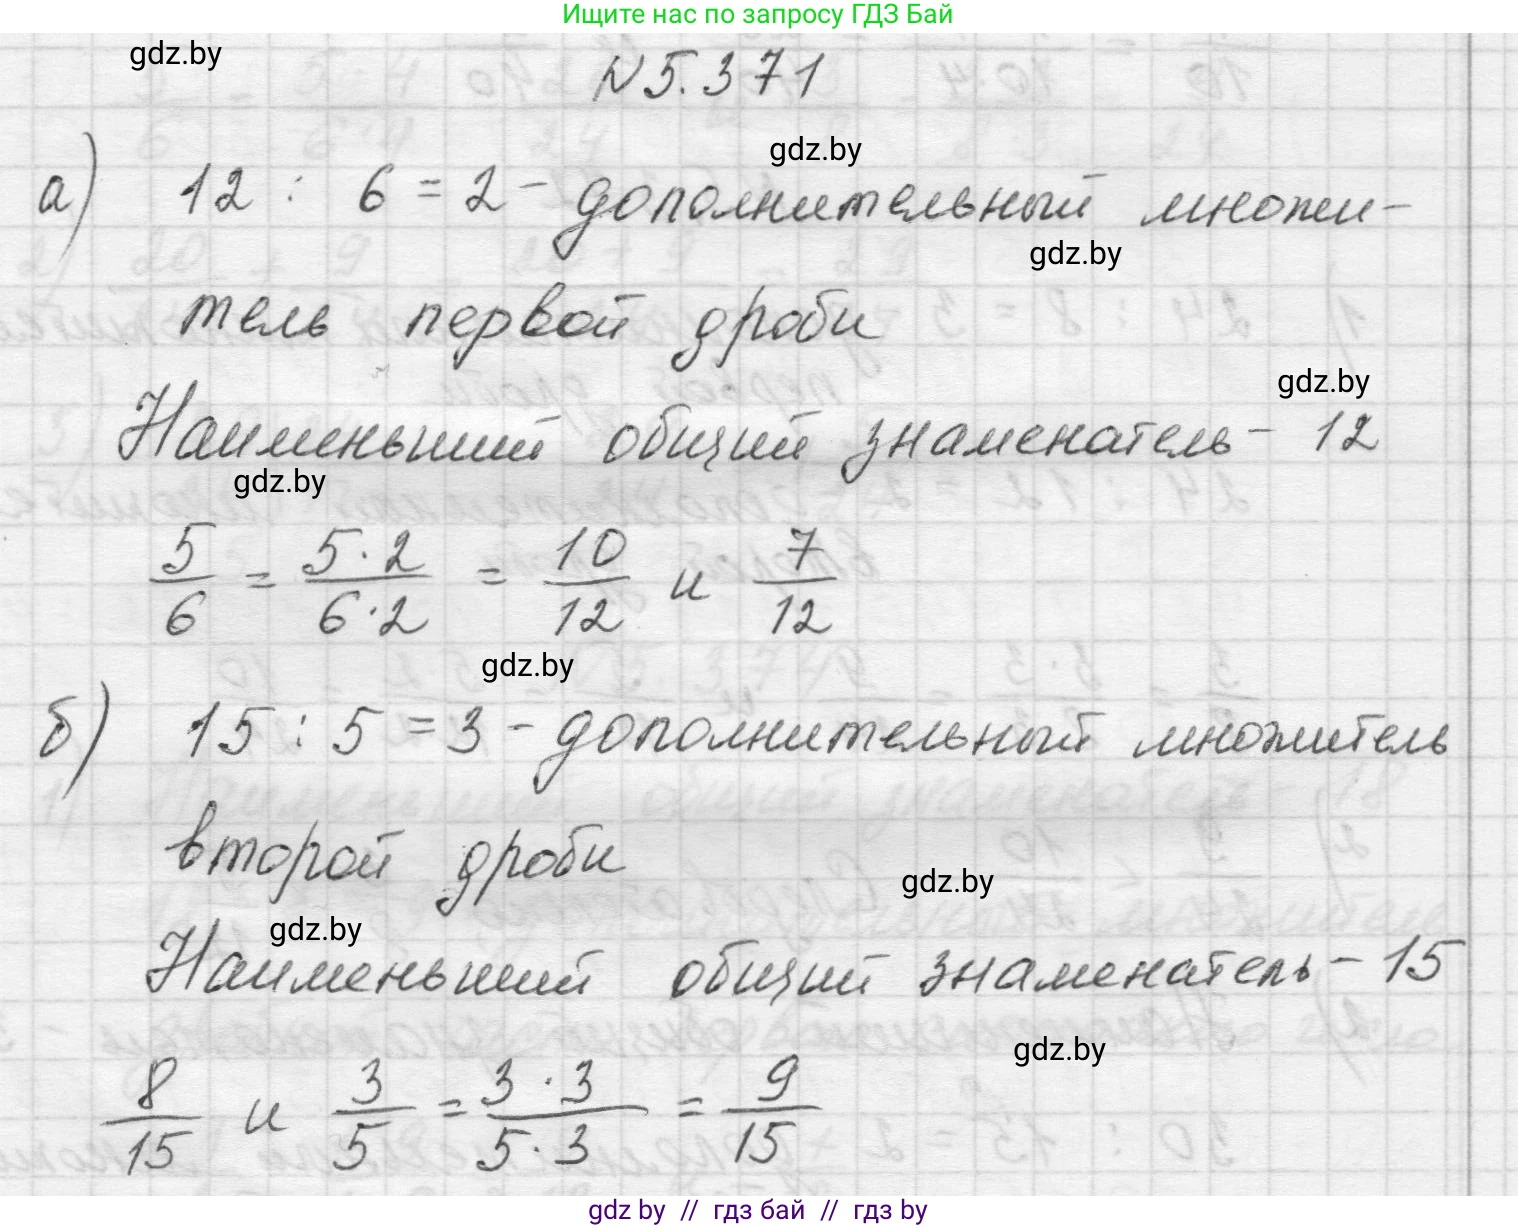 Ищите нас по запросу ГДЗ Бай
gdz.by
N5.371
gdz.by
а) 12 : 6 = 2 - дополнительный множи-
gdz.by
тель первой дроби
gdz.by
Наименьший общий знаменатель - 12
gdz.by
5/6 = 5·2/6·2 = 10/12 и 7/12
gdz.by
б) 15 : 5 = 3 - дополнительный множитель
второй дроби
gdz.by
gdz.by
Наименьший общий знаменатель - 15
gdz.by
8/15 и 3/5 = 3·3/5·3 = 9/15
gdz.by // гдз бай // гдз by